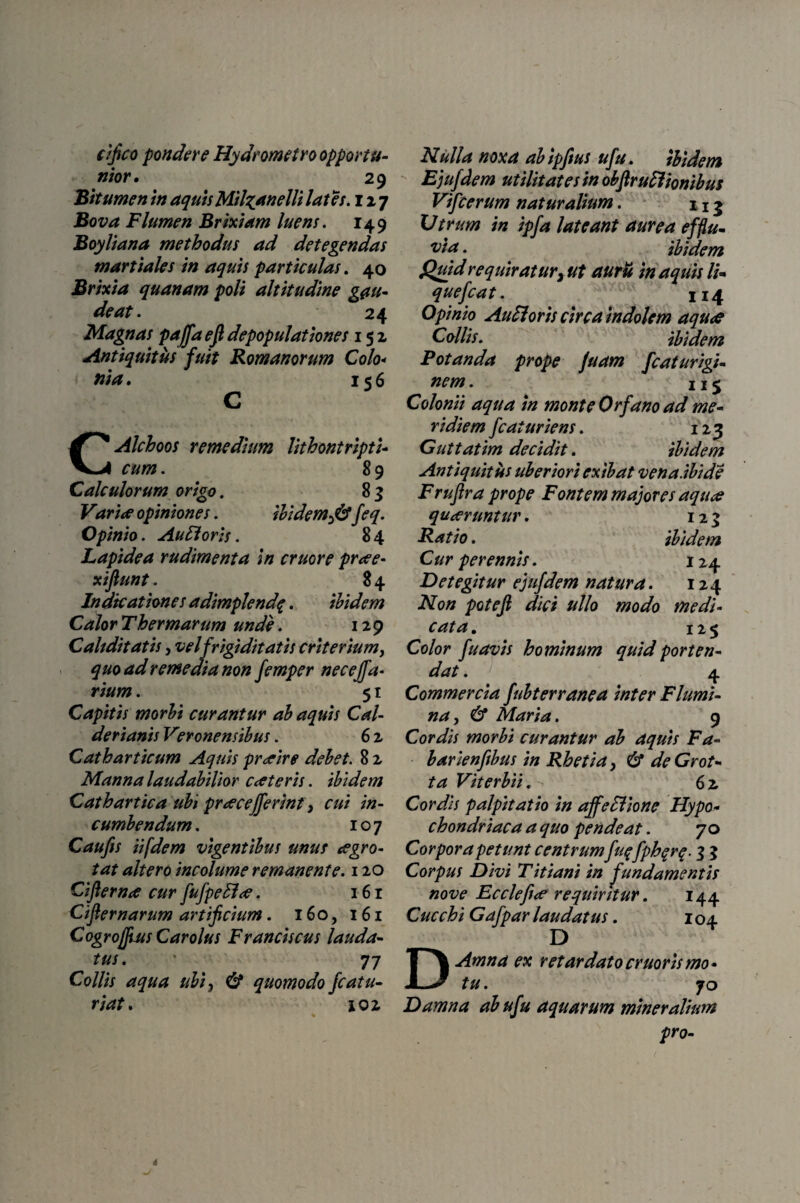 cifico pondere Hydrometro opportu-
nior. 29
Bitumen in aquis Milzanelli latēs. 127
Bova Flumen Brixiam luens. 149
Boyliana methodus ad detegendas
martiales in aquis particulas. 40
Brixia quanam poli altitudine gau-
deat. 24
Magnas passa est depopulationes 152
Antiquitùs fuit Romanorum Colo-
nia. 156
C
CAlchoos remedium lithontripti-
cum. 89
Calculorum origo. 83
Variæ opiniones. ibidem, & seq.
Opinio. Auctoris. 84
Lapidea rudimenta in cruore præe-
xistunt. 84
Indicationes adimplendę. ibidem
Calor Thermarum undè. 129
Caliditatis, vel frigiditatis criterium,
quo ad remedia non semper necessa-
rium. 51
Capitis morbi curantur ab aquis Cal-
derianis Veronensibus. 62
Catharticum Aquis præire debet. 82
Manna laudabilior cæteris. ibidem
Cathartica ubi præcesserint, cui in-
cumbendum. 107
Causis iisdem vigentibus unus ægro-
tat altero incolume remanente. 120
Cisternæ cur suspectæ. 161
Cisternarum artificium. 160, 161
Cogrossius Carolus Franciscus lauda-
tus. 77
Collis aqua ubi, & quomodo scatu-
riat. 102
Nulla noxa ab ipsius usu. ibidem
Ejusdem utilitates in obstructionibus
Viscerum naturalium. 113
Utrum in ipsa lateant aurea efflu-
via. ibidem
Quid requiratur, ut aurū in aquis li-
quescat. 114
Opinio Auctoris circa indolem aquæ
Collis. ibidem
Potanda prope suam scaturigi-
nem. 115
Colonii aqua in monte Orfano ad me-
ridiem scaturiens. 123
Guttatim decidit. ibidem
Antiquitùs uberiori exibat vena. ibidē
Frustra prope Fontem majores aquæ
quæruntur. 123
Ratio. ibidem
Cur perennis. 124
Detegitur ejusdem natura. 124
Non potest dici ullo modo medi-
cata. 125
Color suavis hominum quid porten-
dat. 4
Commercia subterranea inter Flumi-
na, & Maria. 9
Cordis morbi curantur ab aquis Fa-
bariensibus in Rhetia, & de Grot-
ta Viterbii. 62
Cordis palpitatio in affectione Hypo-
chondriaca a quo pendeat. 70
Corpora petunt centrum suę sphęrę. 33
Corpus Divi Titiani in fundamentis
novæ Ecclesiæ requiritur. 144
Cucchi Gaspar laudatus. 104
D
DAmna ex retardato cruoris mo-
tu. 70
Damna ab usu aquarum mineralium
pro-